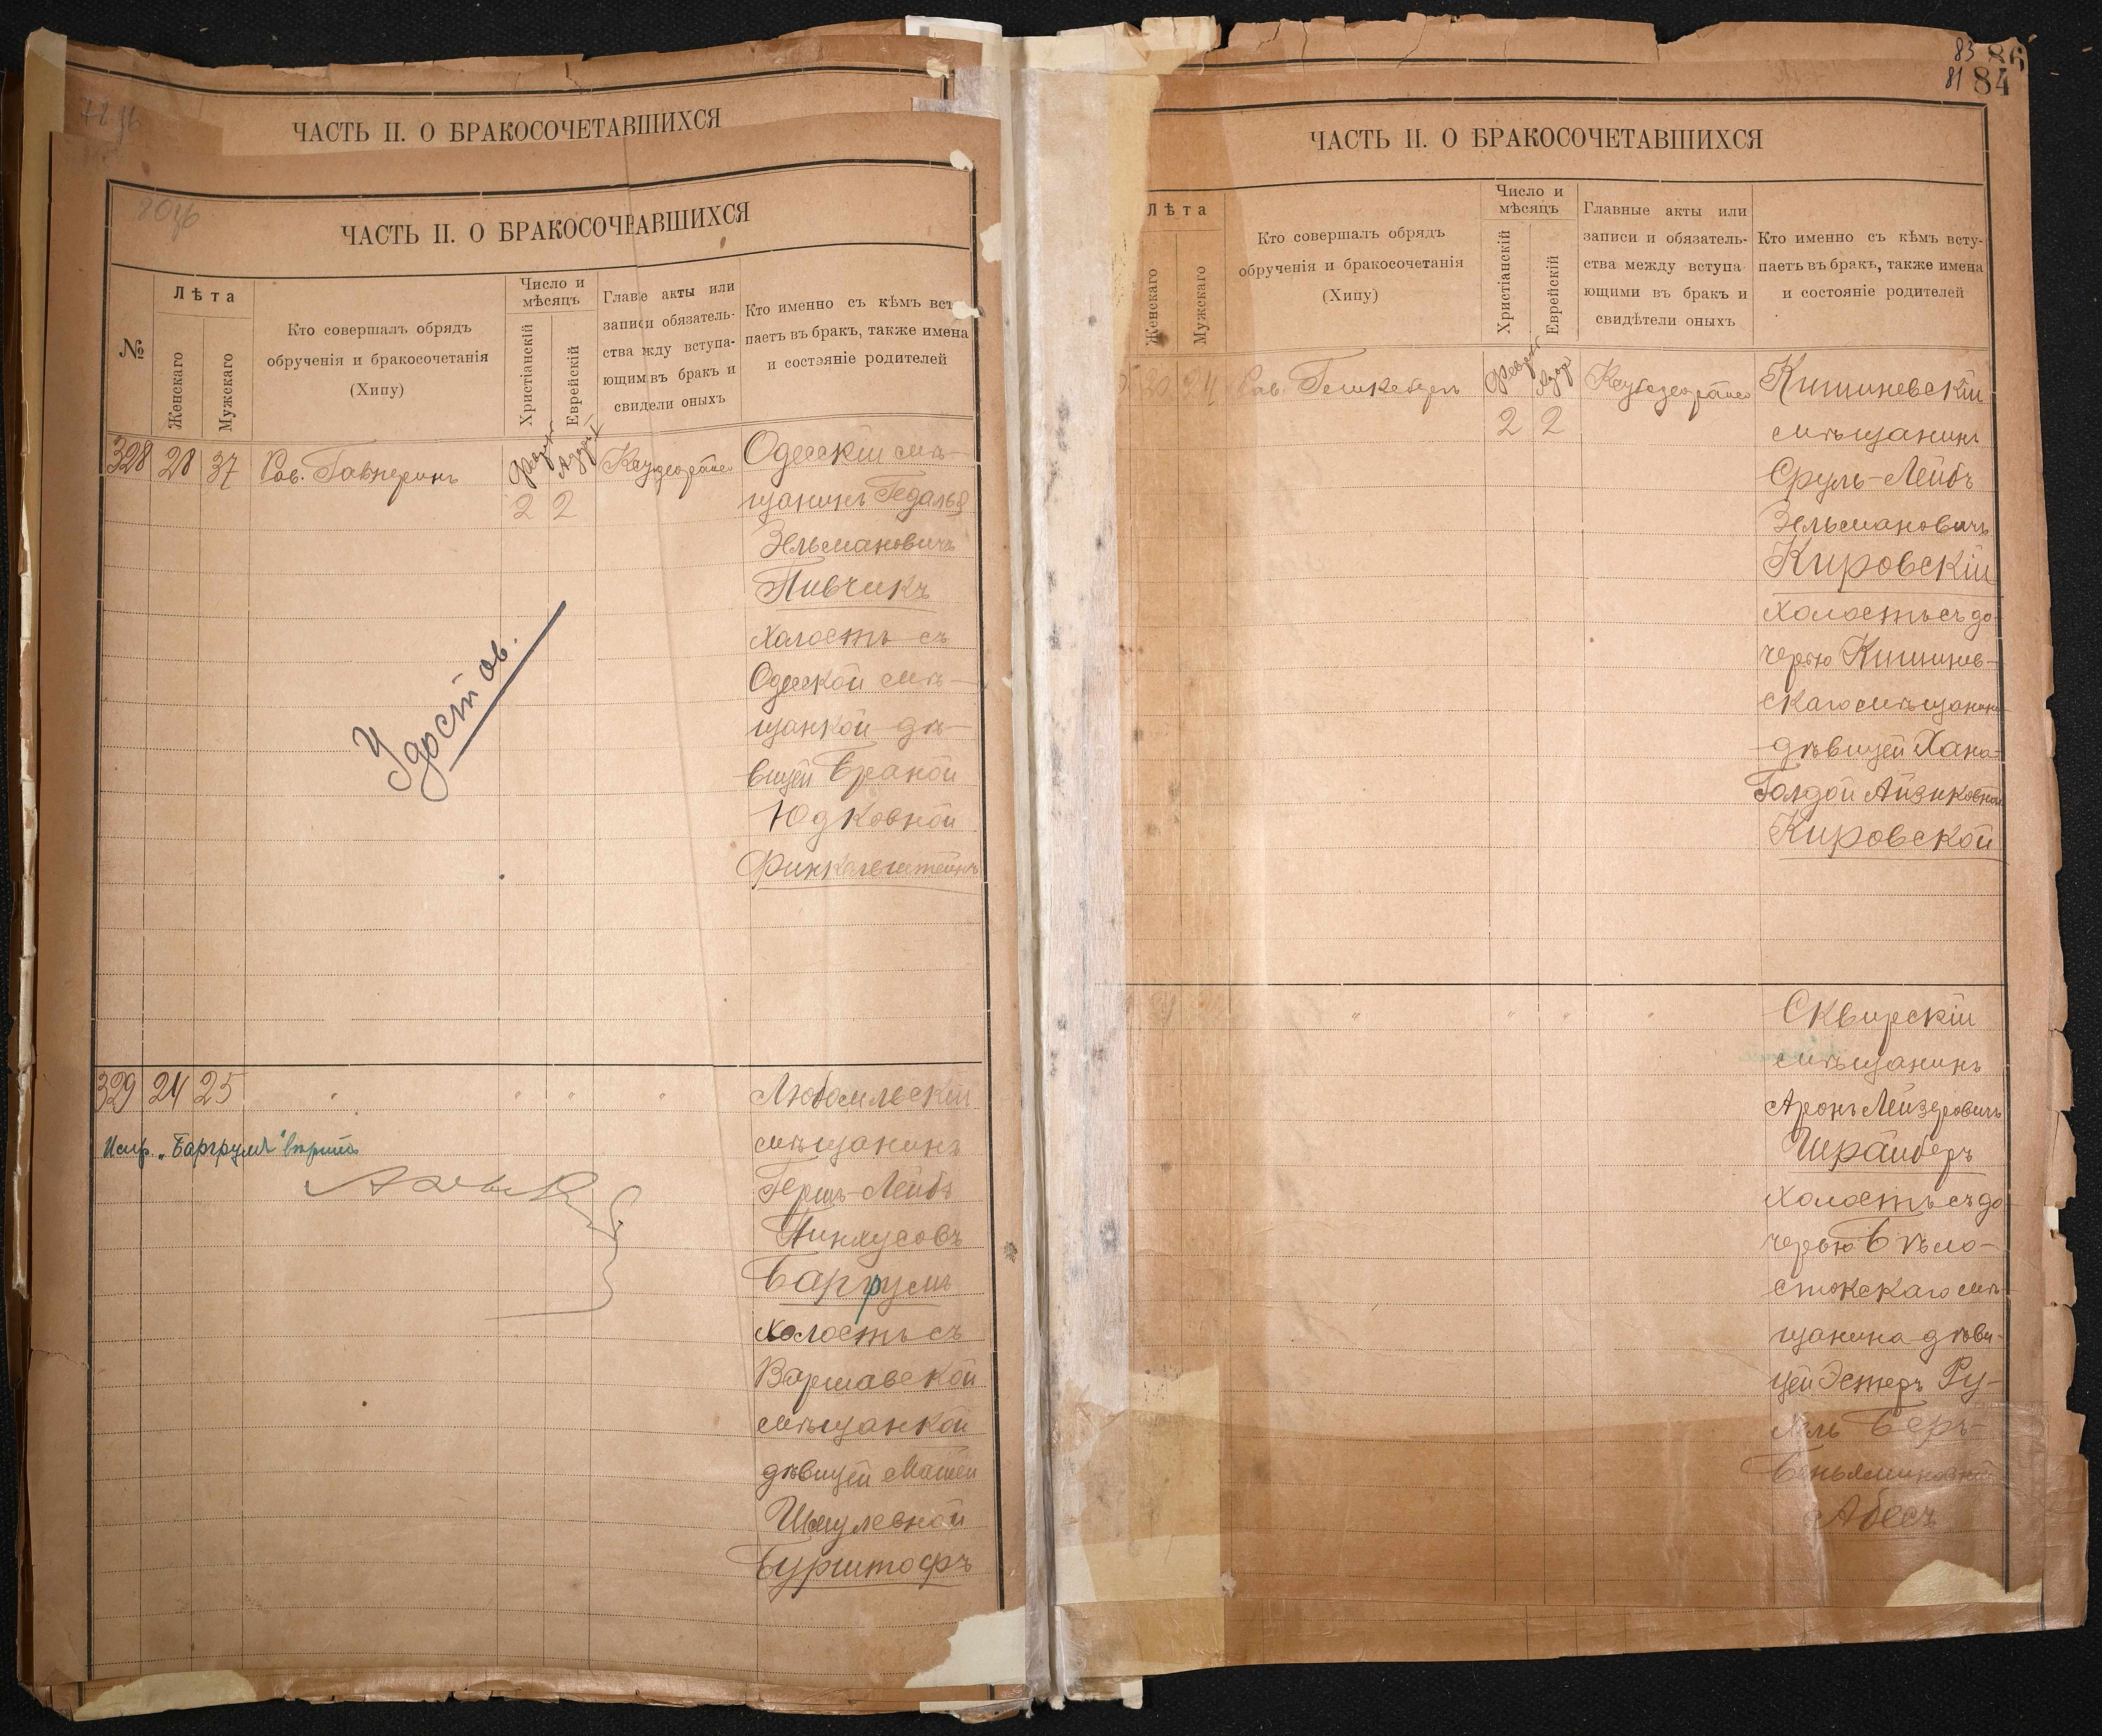 ЧАСТЬ II. О БРАКОСОЧЕТАВШИХСЯ
ЧАСТЬ II. О БРАКОСОЧЕТАВШИХСЯ
№
Лѣта
Женскаго
Мужскаго
Кто совершалъ обрядъ
обрученія и бракосочетанія
(Хипу)
Число и
мѣсяцъ
Христіанскій
Еврейскій
Главные акты или
записи и обязатель-
ства между вступа-
ющими въ бракъ и
свидѣтели оныхъ
Кто именно съ кѣмъ всту-
паетъ въ бракъ, также имена
и состояніе родителей
328 28 37 Рав. Гавнеринъ
2 2
Одесскій мѣ-
щанинъ Гедалья
Зельмановичъ
Пивчикъ
холостъ съ
Одесской мѣ-
щанкой дѣ-
вицей Браной
Юдковной
Финкельштейнъ
Удостов.
329 24 25 " " " "
Любомльскій
мѣщанинъ
Гершъ-Лейбъ
Пинхусовъ
Баргрумъ
холостъ съ
Варшавской
мѣщанкой
дѣвицей Матей
Шмулевной
Бурштофъ
Испр. „Баргрумъ" вѣрно
83 86
81 84
ЧАСТЬ II. О БРАКОСОЧЕТАВШИХСЯ
Лѣта
Женскаго
Мужскаго
Кто совершалъ обрядъ
обрученія и бракосочетанія
(Хипу)
Число и
мѣсяцъ
Христіанскій
Еврейскій
Главные акты или
записи и обязатель-
ства между вступа
ющими въ бракъ и
свидѣтели оныхъ
Кто именно съ кѣмъ всту-
паетъ въ бракъ, также имена
и состояніе родителей
20 24 Рав.
2 2
Кишиневскій
мѣщанинъ
Сруль-Лейбъ
Зельмановичъ
Кировскій
холостъ съ до-
черью Кишинев-
скаго мѣщанина
дѣвицей Хана-
Голдой Айзиковной
Кировской
" " " "
Сквирскій
мѣщанинъ
Аронъ Лейзеровичъ
Шрайберъ
холостъ съ до-
черью Бѣло-
стокскаго мѣ-
щанина дѣви-
цей Эстеръ Ру-
хель Беръ-
Беньяминовной
Абесъ